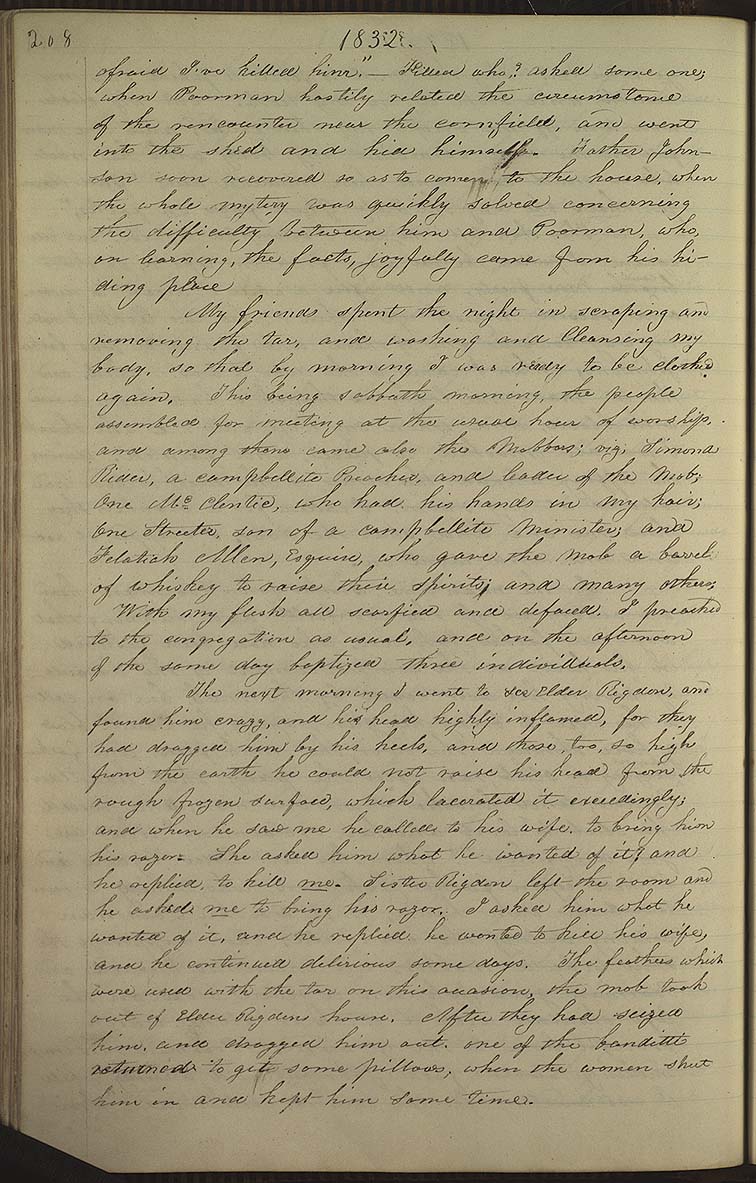 208
1832.
afraid I've killed him."— Killed who? asked some one;
when Poorman hastily related the circumstance
of the rencounter near the cornfield, and went
into the shed and hid himself. Father John-
son soon recovered so as to come to the house, when
the whole mystery was quickly solved concerning
the difficulty between him and Poorman, who,
on learning, the facts, joyfully came from his hi-
ding place
My friends spent the night in scraping and
removing the tar, and washing and cleansing my
body, so that by morning I was ready to be clothed
again. This being sabbath morning, the people
assembled for meeting at the usual hour of worship.
and among those came also the Mobbers; viz; Simond
Rider, a campbellite Preacher, and leader of the Mob;
One Mc. Clentic, who had his hands in my hair;
One Streeter, son of a campbellite Minister; and
Felatiah Allen, Esquire, who gave the mob a barel
of whiskey to raise their spirits; and many others;
With my flesh all scarfied and defaced. I preached
to the congregation as usual, and on the afternoon
of the same day baptized three individuals.
The next morning I went to see Elder Rigdon, and
found him crazy, and his head highly inflamed, for they
had dragged him by his heels, and those, too, so high
from the earth he could not raise his head from the
rough frozen surface, which lacerated it exceedingly;
and when he saw me he called to his wife. to bring him
his razor. She asked him what he wanted of it? and
he replied, to kill me. Sister Rigdon left the room and
he asked me to bring his razor. I asked him what he
wanted of it, and he replied he wanted to kill his wife,
and he continued delirious some days. The feathers which
were used with the tar on this occasion, the mob took
out of Elder Rigdons house. After they had seized
him, and dragged him out. one of the banditti
returned to get some pillows; when the women shut
him in and kept him some time.